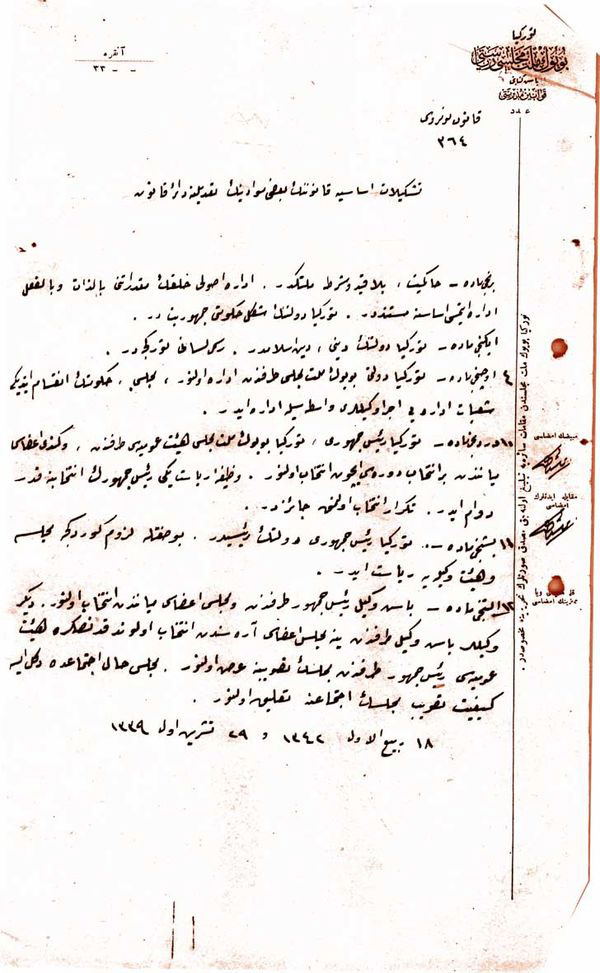 توركيا
بويوك ملت مجلسی رياستی
باش كتابتی
قوانين مديريتی
عدد
آنقره
٣٣ - -
قانون نومروسی
٣٦٤
تشكيلات اساسيه قانوننك بعضی موادينك تعديلنه دائر قانون
برنجی ماده - حاكميت ، بلا قيد و شرط ملتكدر . اداره اصولی خلقك مقدراتنی بالذات و بالفعل
اداره ايتمسی اساسنه مستنددر . توركيا دولتنك شكل حكومتی جمهوريت در .
ايكنجی ماده - توركيا دولتنك دينی ، دين اسلامدر . رسمی لسانی توركجه در .
٤ اوچنجی ماده - توركيا دولتی بويوك ملت مجلسی طرفندن اداره اولنور . مجلس ، حكومتك انقسام ايتديكی
شعبات اداره يی اجرا وكيللری واسطه سيله اداره ايدر .
١٠ دردنجی ماده - توركيا رئيس جمهوری ، توركيا بويوك ملت مجلسی هيئت عموميه سی طرفندن ، و كندی اعضاسی
مياننـدن بر انتخاب دوره سی ايچون انتخاب اولنور . وظيفۀ رياست يكی رئيس جمهورك انتخابنه قدر
دوام ايدر . تكرار انتخاب اولنمق جائزدر .
١١ بشنجی ماده - توركيا رئيس جمهوری دولتك رئيسيدر . بو صفتله لزوم كوردكجه مجلسه
و هيئت وكيله يه رياست ايدر .
١٢ آلتنجی ماده - باش وكيل رئيس جمهور طرفندن و مجلس اعضاسی مياننـدن انتخاب اولنور . ديكر
وكيللر باش وكيل طرفندن ينه مجلس اعضاسی آره سندن انتخاب اولوندقدنصكره هيئت
عموميه سی رئيس جمهور طرفندن مجلسك تصويبنه عرض اولنور . مجلس حال اجتماعده دكل ايسه
كيفيت تصويب مجلسك اجتماعنه تعليق اولنور .
١٨ ربيع الاول ١٣٤٢ و ٢٩ تشرين اول ١٣٣٩
توركيا بويوك ملت مجلسندن مقامات سائره يه تبليغ اولنه جق مصدق صورتلرك تحريرينه مخصوصدر .
مبيضك امضاسی
مقابله ايدنلرك
امضاسی